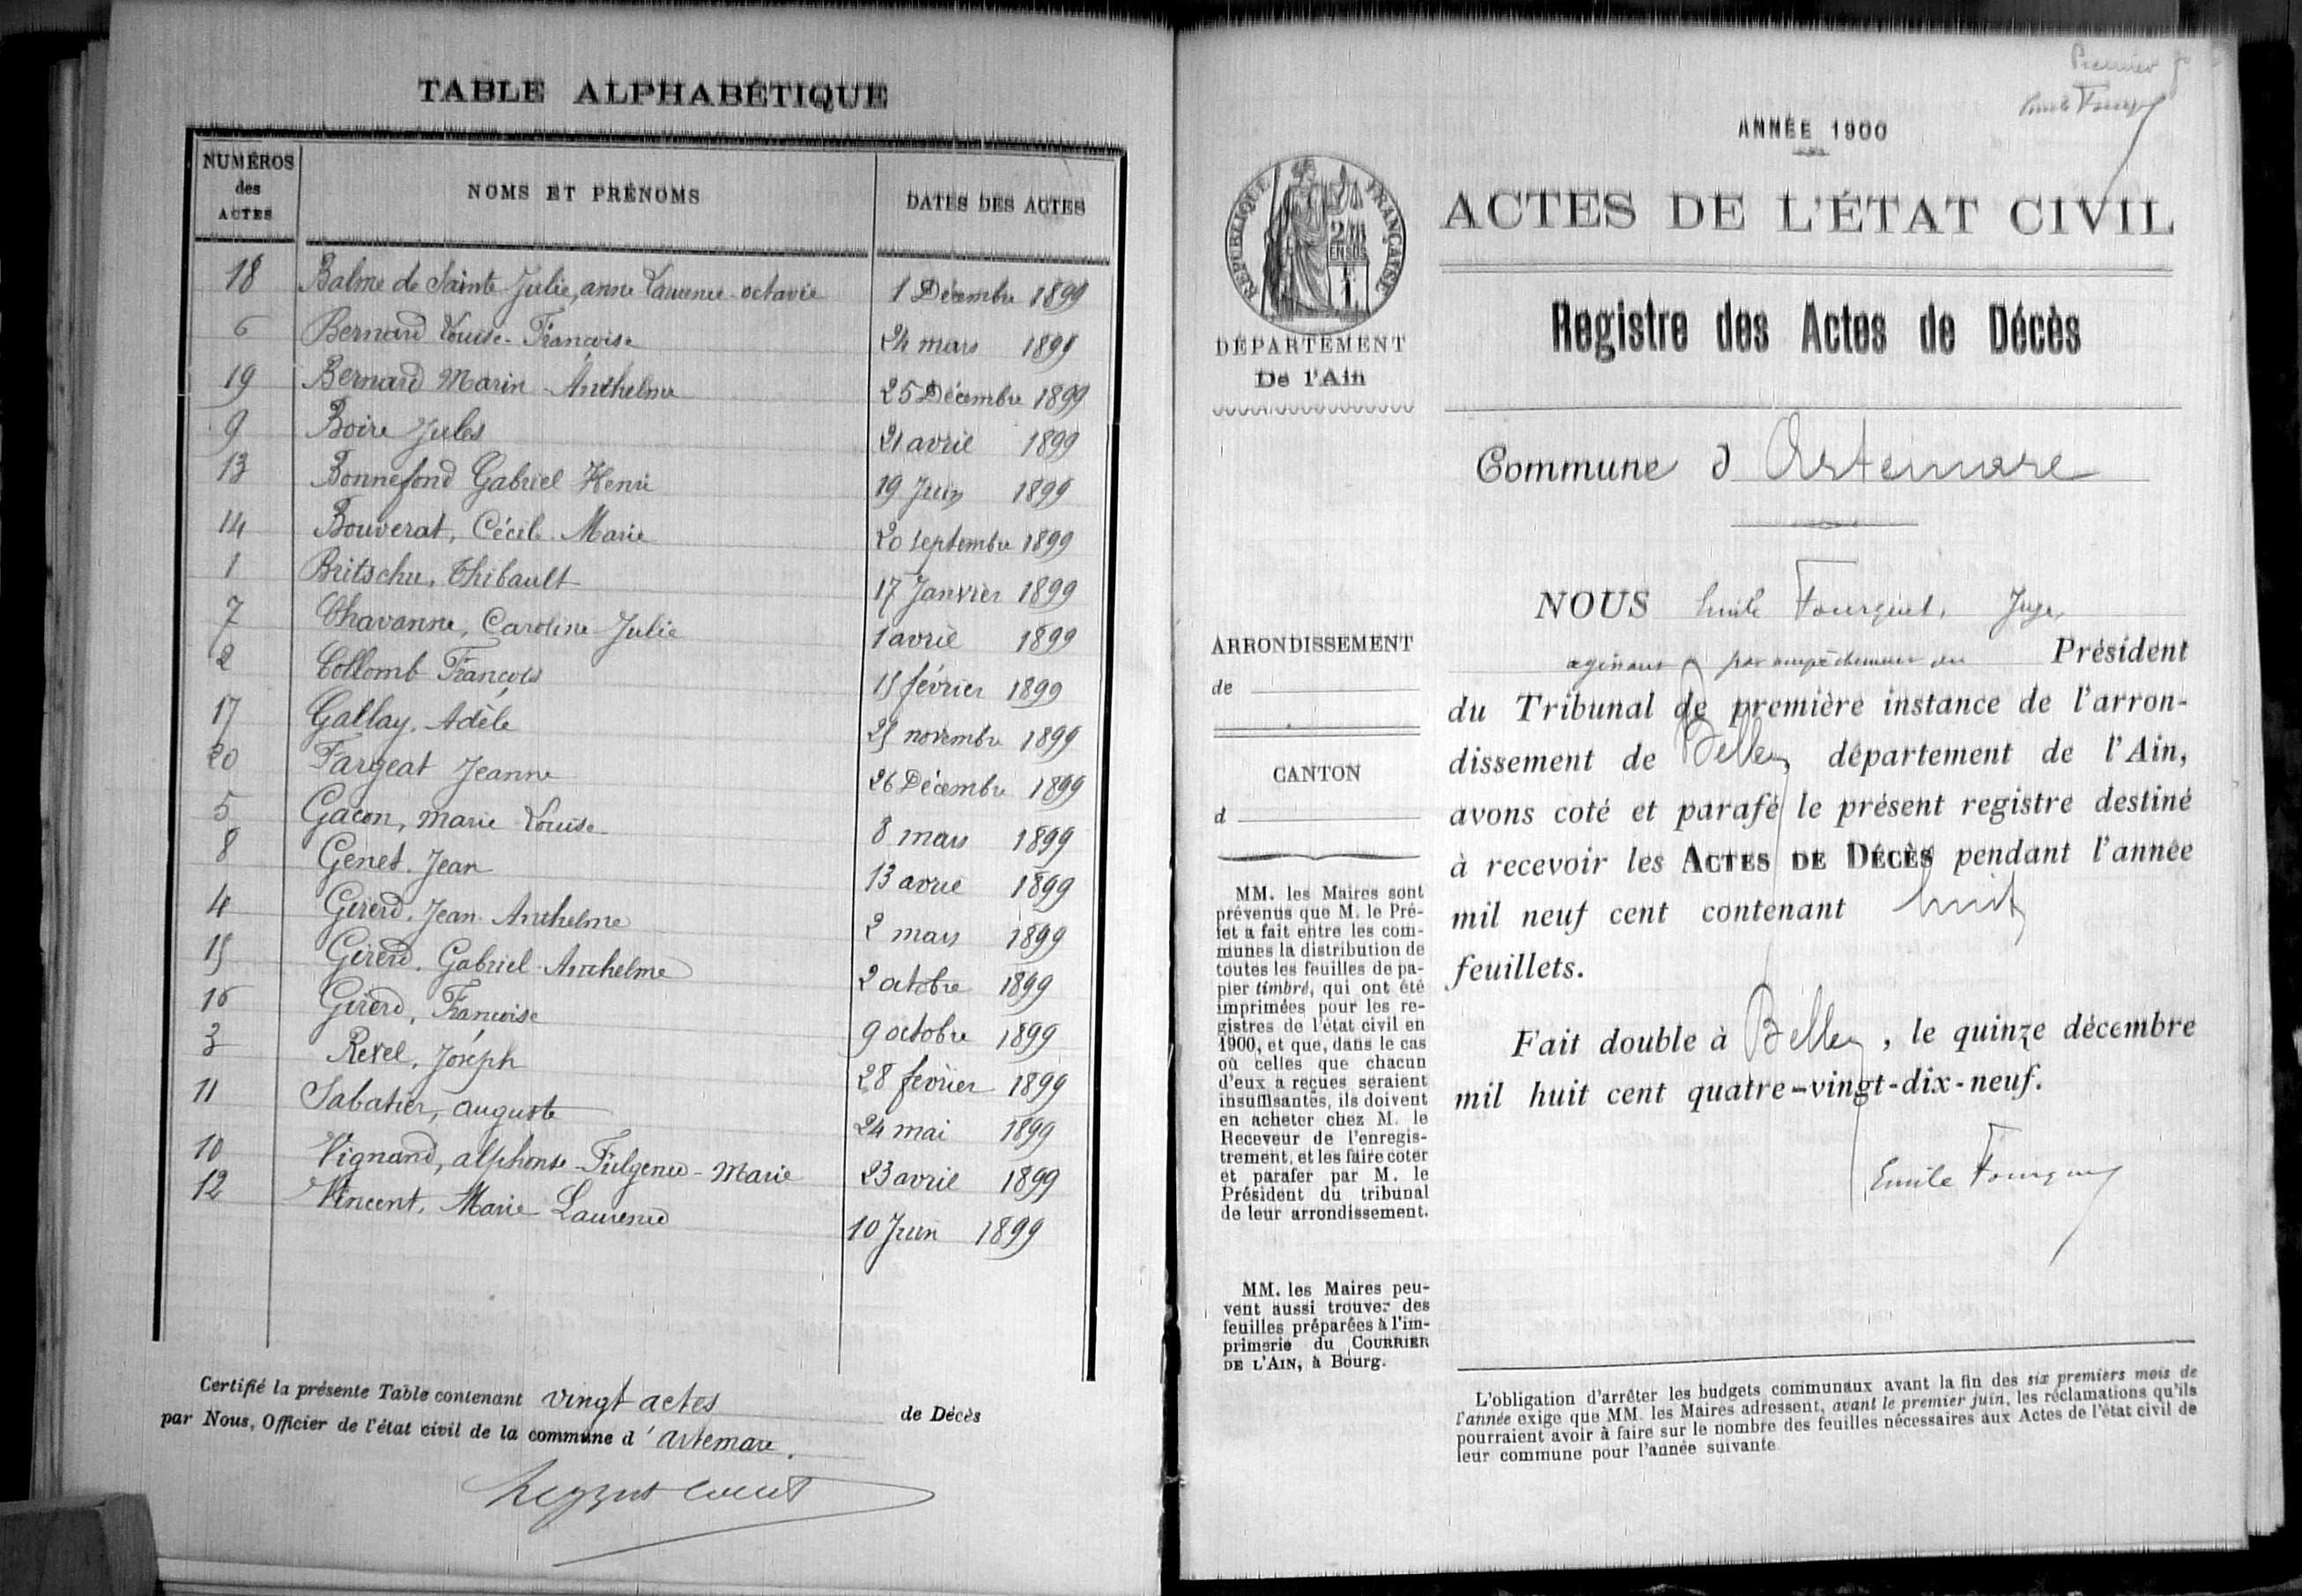 TABLE ALPHABÉTIQUE
NUMÉROS des ACTES NOMS ET PRÉNOMS DATES DES ACTES
18 Balme de Sainte Julie, anne Laurence octavie 1 Décembre 1899
6 Bernard Louise-Françoise 24 mars 1899
19 Bernard Marin-Anthelme 25 Décembre 1899
9 Boire Jules 21 avril 1899
13 Bonnefond Gabriel Henri 19 Juin 1899
14 Bouverat, Cécile Marie 20 septembre 1899
1 Britschu, Thibault 17 Janvier 1899
7 Chavanne, Caroline Julie 1 avril 1899
2 Collomb François 15 février 1899
17 Gallay, Adèle 25 novembre 1899
20 Fargeat Jeanne 26 Décembre 1899
5 Gacon, marie Louise 8 mars 1899
8 Genet Jean 13 avril 1899
4 Girerd, Jean Anthelme 2 mars 1899
15 Girerd, Gabriel Anthelme 2 octobre 1899
16 Girerd, Françoise 9 octobre 1899
3 Revel, Joseph 28 février 1899
11 Sabatier, auguste 24 mai 1899
10 Vignand, alphonse-Fulgence-Marie 23 avril 1899
12 Vincent, Marie Laurence 10 Juin 1899
Certifié la présente Table contenant vingt actes de Décès
par Nous, Officier de l'état civil de la commune d'Artemare.
Premier
Emile Fourquet
ANNÉE 1900
RÉPUBLIQUE FRANÇAISE
EN SUS
ACTES DE L'ÉTAT CIVIL
DÉPARTEMENT
De l'Ain
Registre des Actes de Décès
Commune d Artemare
ARRONDISSEMENT
de
CANTON
d
MM. les Maires sont
prévenus que M. le Pré-
fet a fait entre les com-
munes la distribution de
toutes les feuilles de pa-
pier timbré, qui ont été
imprimées pour les re-
gistres de l'état civil en
1900, et que, dans le cas
où celles que chacun
d'eux a reçues seraient
insuffisantes, ils doivent
en acheter chez M. le
Receveur de l'enregis-
trement, et les faire coter
et parafer par M. le
Président du tribunal
de leur arrondissement.
MM. les Maires peu-
vent aussi trouver des
feuilles préparées à l'im-
primerie du COURRIER
DE L'AIN, à Bourg.
NOUS Emile Fourquet, Juge,
agissant par empêchement du Président
du Tribunal de première instance de l'arron-
dissement de Belley, département de l'Ain,
avons coté et parafé le présent registre destiné
à recevoir les ACTES DE DÉCÈS pendant l'année
mil neuf cent contenant huit
feuillets.
Fait double à Belley, le quinze décembre
mil huit cent quatre-vingt-dix-neuf.
Emile Fourquet
L'obligation d'arrêter les budgets communaux avant la fin des six premiers mois de
l'année exige que MM. les Maires adressent, avant le premier juin, les réclamations qu'ils
pourraient avoir à faire sur le nombre des feuilles nécessaires aux Actes de l'état civil de
leur commune pour l'année suivante